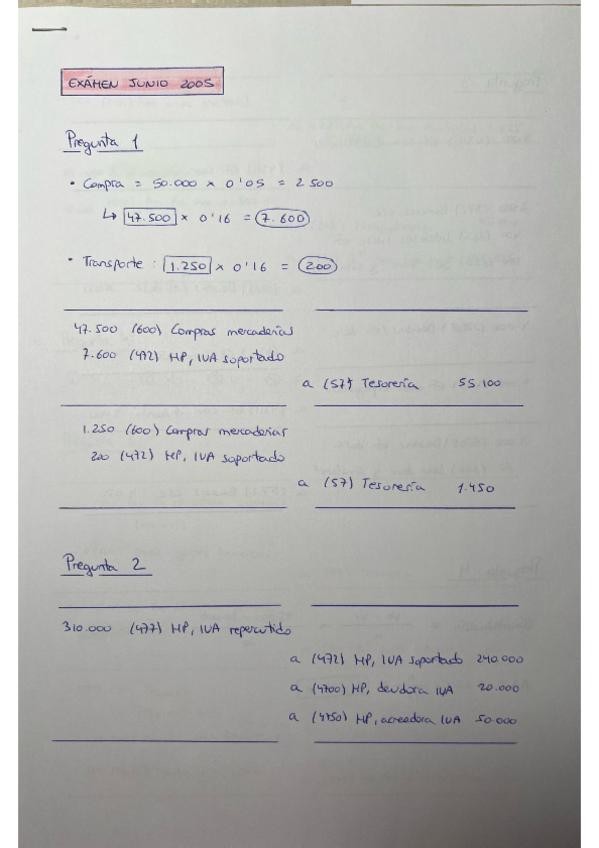 EXÁMEN JUNIO 2005
Pregunta 1
• Compra = 50.000 x 0'05 = 2 500
↳ 47.500 x 0'16 = 7.600
• Transporte : 1.250 x 0'16 = 200
47.500 (600) Compras mercaderías
7.600 (472) HP, IVA soportado
a (57) Tesorería 55.100
1.250 (600) Compras mercaderías
200 (472) HP, IVA soportado
a (57) Tesorería 1.450
Pregunta 2
310.000 (477) HP, IVA repercutido
a (472) HP, IVA soportado 240.000
a (4700) HP, deudora IVA 20.000
a (4750) HP, acreedora IVA 50.000